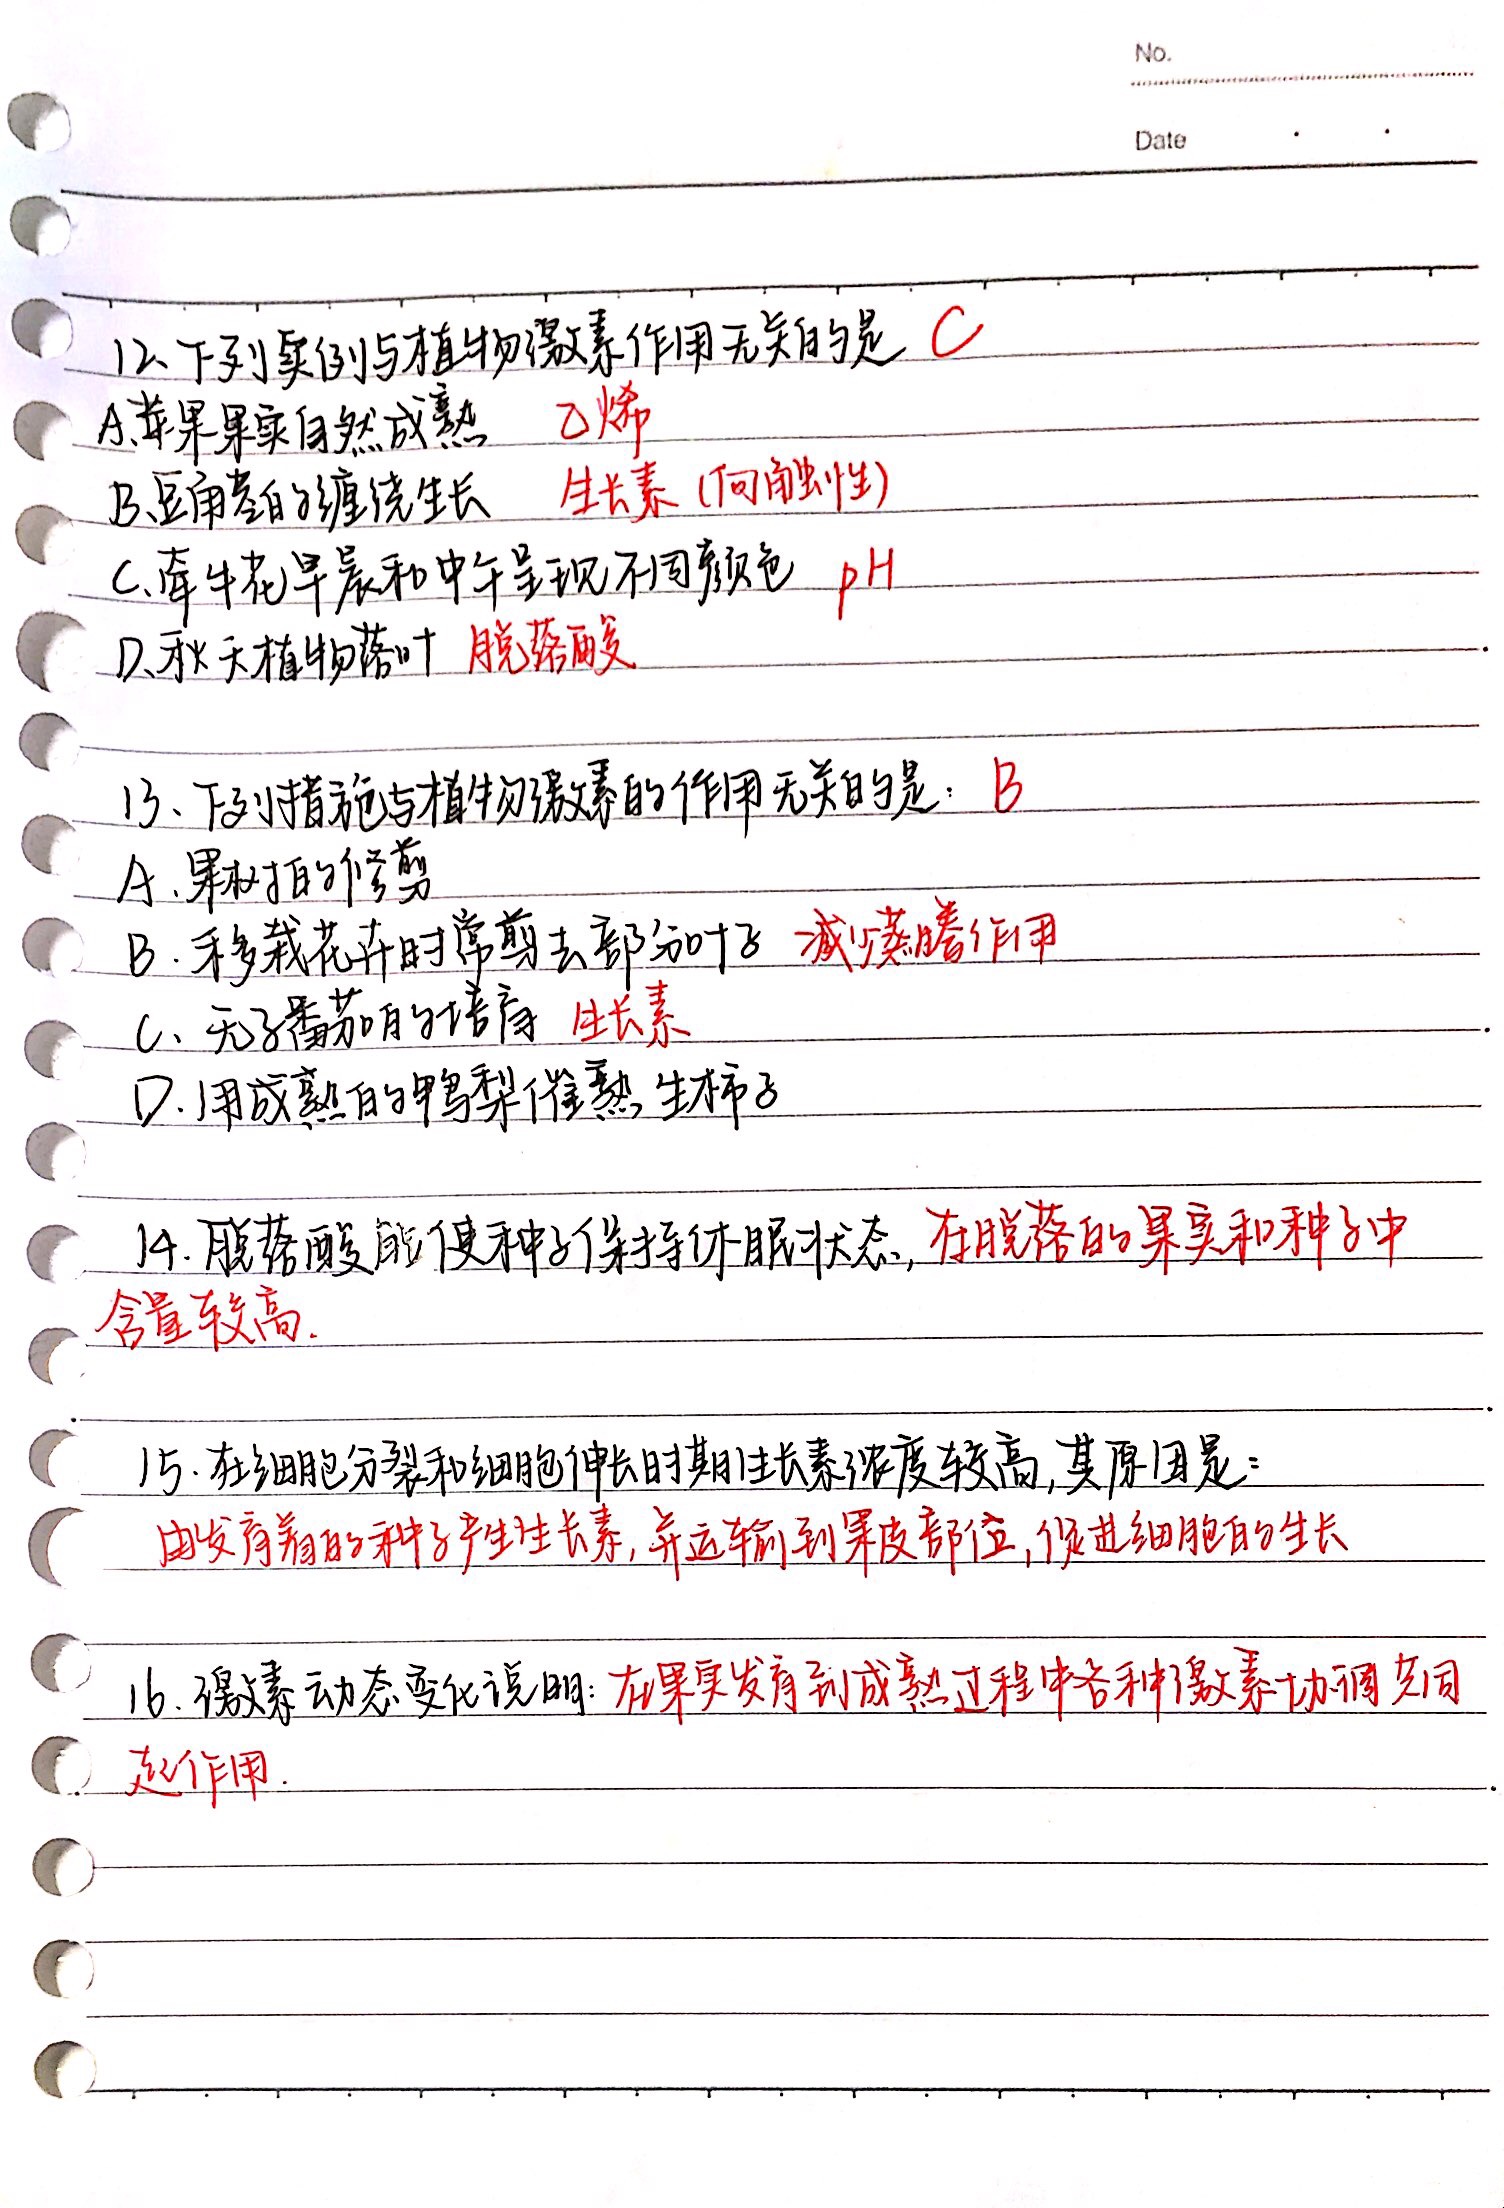 No.
Date
12、下列实例与植物激素作用无关的是 C
A、苹果果实自然成熟 乙烯
B、豆角茎的缠绕生长 生长素(向触性)
C、牵牛花早晨和中午呈现不同颜色 pH
D、秋天植物落叶 脱落酸
13、下列措施与植物激素的作用无关的是： B
A.果树的修剪
B.移栽花卉时常剪去部分叶子 减少蒸腾作用
C、无子番茄的培育 生长素
D.用成熟的鸭梨催熟生柿子
14.脱落酸能使种子保持休眠状态,在脱落的果实和种子中
含量较高.
15.在细胞分裂和细胞伸长时期生长素浓度较高,其原因是：
由发育着的种子产生生长素,并运输到果皮部位,促进细胞的生长
16.激素动态变化说明：在果实发育到成熟过程中各种激素协调共同
起作用.